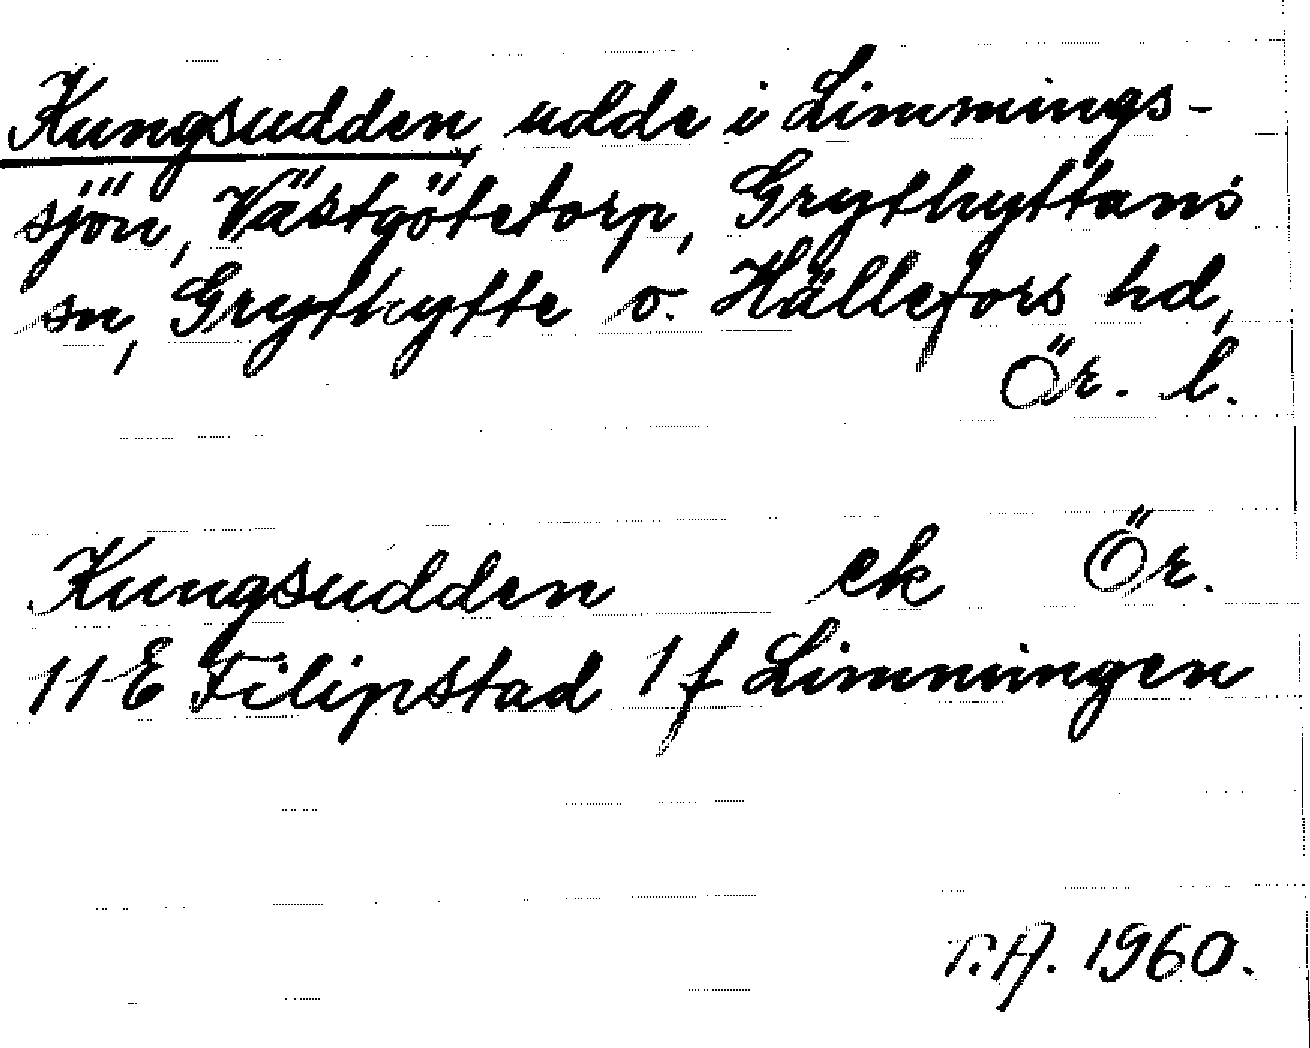 Kungsudden, udde i Limmings-
sjön, Västgötetorp, Grythyttans
sn, Grythytte o. Hällefors hd,
Ör. l.
Kungsudden ek Ör.
11E Filipstad 1f Limmingen
T.A. 1960.